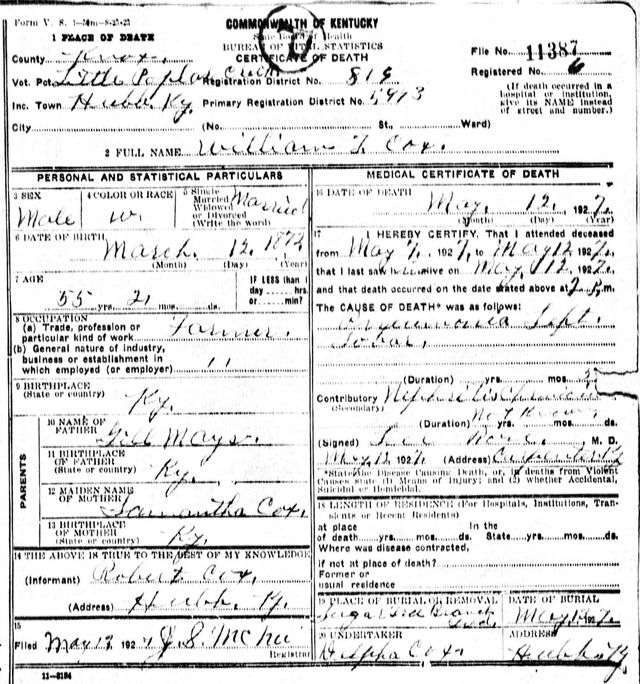 Form V. S. 1-
COMMONWEALTH OF KENTUCKY
1 PLACE OF DEATH
State Board of Health
BUREAU OF VITAL STATISTICS
CERTIFICATE OF DEATH
County Knox.
File No. 11387
Vot. Pct. Little Poplar Creek Registration District No. 819
Registered No. 6
Inc. Town Hubb. Ky. Primary Registration District No. 5913
(If death occurred in a
hospital or institution,
give its NAME instead
of street and number.)
City (No. St., Ward)
2 FULL NAME William T. Cox.
PERSONAL AND STATISTICAL PARTICULARS
MEDICAL CERTIFICATE OF DEATH
3 SEX Male
4 COLOR OR RACE W.
5 Single Married Widowed or Divorced (Write the word) Married
6 DATE OF BIRTH March. 12, 1872
(Month) (Day) (Year)
7 AGE
55 yrs. 2 mos. ds.
IF LESS than 1
day hrs.
or min?
8 OCCUPATION
(a) Trade, profession or
particular kind of work Farmer.
(b) General nature of industry,
business or establishment in
which employed (or employer) "
9 BIRTHPLACE
(State or country) Ky.
PARENTS
10 NAME OF
FATHER Gill Mays.
11 BIRTHPLACE
OF FATHER
(State or country) Ky.
12 MAIDEN NAME
OF MOTHER Samantha Cox.
13 BIRTHPLACE
OF MOTHER
(State or country) Ky.
14 THE ABOVE IS TRUE TO THE BEST OF MY KNOWLEDGE
(Informant) Robert Cox.
(Address) Hubb. Ky.
15
Filed May 13 1927 J. S. McHei
Registrar
11-3184
16 DATE OF DEATH May. 12. 1927.
(Month) (Day) (Year)
17 I HEREBY CERTIFY, That I attended deceased
from May 7, 1927, to May 12 1927.
that I last saw alive on May 12 1927.
and that death occurred on the date stated above at m.
The CAUSE OF DEATH* was as follows:
Pneumonia Left.
Lobar.
(Duration) yrs. mos.
Contributory
(Secondary)
(Duration) Not Known mos. ds.
(Signed) M. D.
May 13 1927. (Address)
*State the Disease Causing Death, or, in deaths from Violent
Causes state (1) Means of Injury; and (2) whether Accidental,
Suicidal or Homicidal.
18 LENGTH OF RESIDENCE (For Hospitals, Institutions, Tran-
sients or Recent Residents)
at place In the
of death yrs. mos. ds. State yrs. mos. ds.
Where was disease contracted,
if not at place of death?
Former or
usual residence
19 PLACE OF BURIAL OR REMOVAL
DATE OF BURIAL
Branch
20 UNDERTAKER
ADDRESS
Cox. Hubb. Ky.